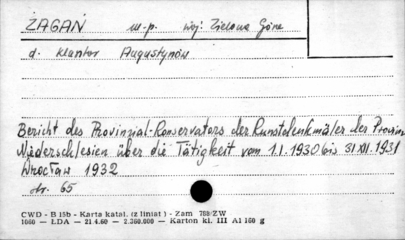 ŻAGAŃ m-p. woj. Zielona Góra
d. klasztor Augustynów
Bericht des Provinzial-Konservators der Kunstdenkmäler der Provinz
Niederschlesien über die Tätigkeit vom 1.I.1930 bis 31.XII.1931
Wrocław 1932
str. 65
CWD - B 15b - Karta katal. (z liniat) - Zam 788/ZW
1060 - LDA - 21.4.60 - 2.360.000 - Karton kl. III A1 160 g